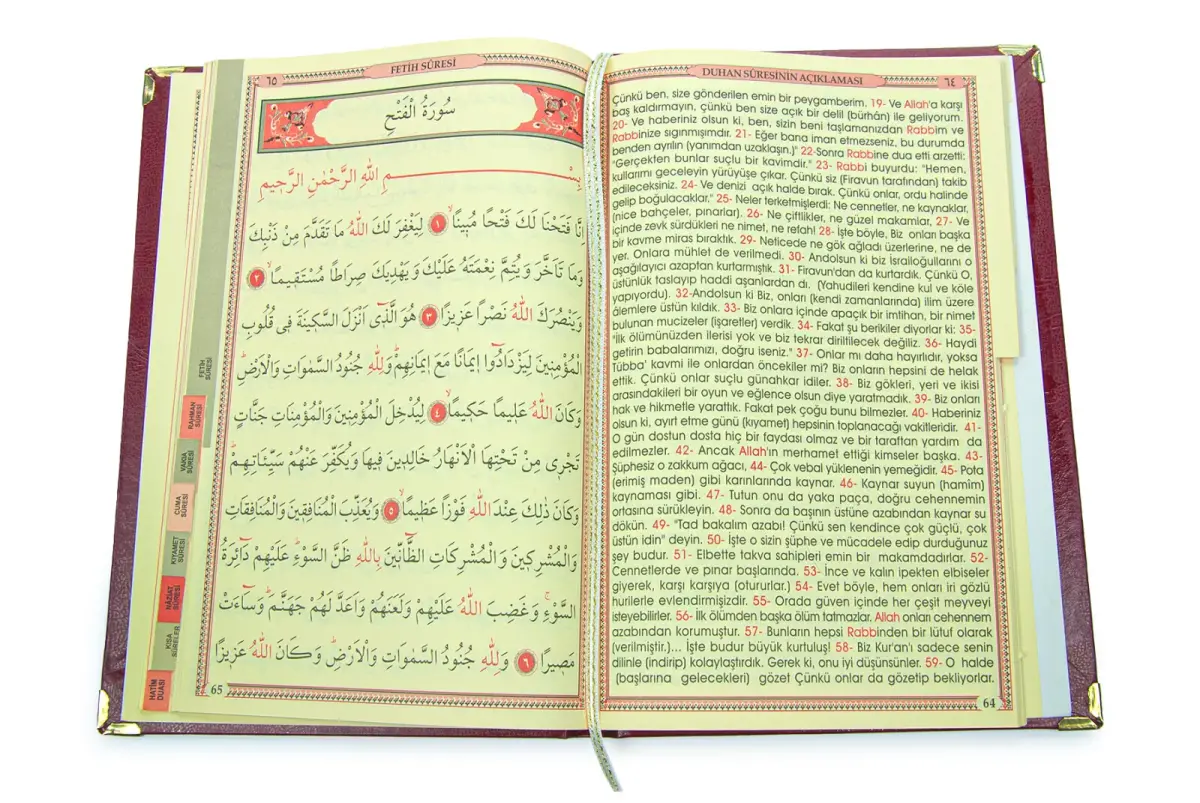 ٦٤
DUHAN SÛRESİNİN AÇIKLAMASI
Çünkü ben, size gönderilen emin bir peygamberim. 19- Ve Allah'a karşı
baş kaldırmayın, çünkü ben size açık bir delil (bürhân) ile geliyorum.
20- Ve haberiniz olsun ki, ben, sizin beni taşlamanızdan Rabbim ve
Rabbinize sığınmışımdır. 21- Eğer bana iman etmezseniz, bu durumda
benden ayrılın (yanımdan uzaklaşın.)" 22-Sonra Rabbine dua etti arzetti:
"Gerçekten bunlar suçlu bir kavimdir." 23- Rabbi buyurdu: "Hemen,
kullarımı geceleyin yürüyüşe çıkar. Çünkü siz (Firavun tarafından) takib
edileceksiniz. 24- Ve denizi açık halde bırak. Çünkü onlar, ordu halinde
gelip boğulacaklar." 25- Neler terketmişlerdi: Ne cennetler, ne kaynaklar,
(nice bahçeler, pınarlar). 26- Ne çiftlikler, ne güzel makamlar, 27- Ve
içinde zevk sürdükleri ne nimet, ne refah! 28- İşte böyle, Biz onları başka
bir kavme miras bıraktık. 29- Neticede ne gök ağladı üzerlerine, ne de
yer. Onlara mühlet de verilmedi. 30- Andolsun ki biz İsrailoğullarını o
aşağılayıcı azaptan kurtarmıştık. 31- Firavun'dan da kurtardık. Çünkü O,
üstünlük taslayıp haddi aşanlardan dı. (Yahudileri kendine kul ve köle
yapıyordu). 32-Andolsun ki Biz, onları (kendi zamanlarında) ilim üzere
âlemlere üstün kıldık. 33- Biz onlara içinde apaçık bir imtihan, bir nimet
bulunan mucizeler (işaretler) verdik. 34- Fakat şu berikiler diyorlar ki: 35-
"İlk ölümünüzden ilerisi yok ve biz tekrar diriltilecek değiliz. 36- Haydi
getirin babalarımızı, doğru iseniz." 37- Onlar mı daha hayırlıdır, yoksa
Tübba' kavmi ile onlardan öncekiler mi? Biz onların hepsini de helak
ettik. Çünkü onlar suçlu günahkar idiler. 38- Biz gökleri, yeri ve ikisi
arasındakileri bir oyun ve eğlence olsun diye yaratmadık. 39- Biz onları
hak ve hikmetle yarattık. Fakat pek çoğu bunu bilmezler. 40- Haberiniz
olsun ki, ayırt etme günü (kıyamet) hepsinin toplanacağı vakitleridir. 41-
O gün dostun dosta hiç bir faydası olmaz ve bir taraftan yardım da
edilmezler. 42- Ancak Allah'ın merhamet ettiği kimseler başka. 43-
Şüphesiz o zakkum ağacı, 44- Çok vebal yüklenenin yemeğidir. 45- Pota
(erimiş maden) gibi karınlarında kaynar. 46- Kaynar suyun (hamîm)
kaynaması gibi. 47- Tutun onu da yaka paça, doğru cehennemin
ortasına sürükleyin. 48- Sonra da başının üstüne azabından kaynar su
dökün. 49- "Tad bakalım azabı! Çünkü sen kendince çok güçlü, çok
üstün idin" deyin. 50- İşte o sizin şüphe ve mücadele edip durduğunuz
şey budur. 51- Elbette takva sahipleri emin bir makamdadırlar. 52-
Cennetlerde ve pınar başlarında. 53- İnce ve kalın ipekten elbiseler
giyerek, karşı karşıya (otururlar.) 54- Evet böyle, hem onları iri gözlü
hurilerle evlendirmişizdir. 55- Orada güven içinde her çeşit meyveyi
isteyebilirler. 56- İlk ölümden başka ölüm tatmazlar. Allah onları cehennem
azabından korumuştur. 57- Bunların hepsi Rabbinden bir lütuf olarak
(verilmiştir.)... İşte budur büyük kurtuluş! 58- Biz Kur'an'ı sadece senin
dilinle (indirip) kolaylaştırdık. Gerek ki, onu iyi düşünsünler. 59- O halde
(başlarına gelecekleri) gözet Çünkü onlar da gözetip bekliyorlar.
64
٦٥
FETİH SÛRESİ
سُورَةُ الْفَتْحِ
بِسْمِ اللّٰهِ الرَّحْمٰنِ الرَّحٖيمِ
اِنَّا فَتَحْنَا لَكَ فَتْحًا مُبٖينًاۙ ١ لِيَغْفِرَ لَكَ اللّٰهُ مَا تَقَدَّمَ مِنْ ذَنْبِكَ
وَمَا تَاَخَّرَ وَيُتِمَّ نِعْمَتَهُ عَلَيْكَ وَيَهْدِيَكَ صِرَاطًا مُسْتَقٖيمًاۙ ٢
وَيَنْصُرَكَ اللّٰهُ نَصْرًا عَزٖيزًا ٣ هُوَ الَّذٖٓى اَنْزَلَ السَّكٖينَةَ فٖى قُلُوبِ
الْمُؤْمِنٖينَ لِيَزْدَادُٓوا اٖيمَانًا مَعَ اٖيمَانِهِمْؕ وَلِلّٰهِ جُنُودُ السَّمٰوَاتِ وَالْاَرْضِؕ
وَكَانَ اللّٰهُ عَلٖيمًا حَكٖيمًاۙ ٤ لِيُدْخِلَ الْمُؤْمِنٖينَ وَالْمُؤْمِنَاتِ جَنَّاتٍ
تَجْرٖى مِنْ تَحْتِهَا الْاَنْهَارُ خَالِدٖينَ فٖيهَا وَيُكَفِّرَ عَنْهُمْ سَيِّـَٔاتِهِمْؕ
وَكَانَ ذٰلِكَ عِنْدَ اللّٰهِ فَوْزًا عَظٖيمًاۙ ٥ وَيُعَذِّبَ الْمُنَافِقٖينَ وَالْمُنَافِقَاتِ
وَالْمُشْرِكٖينَ وَالْمُشْرِكَاتِ الظَّٓانّٖينَ بِاللّٰهِ ظَنَّ السَّوْءِؕ عَلَيْهِمْ دَٓائِرَةُ
السَّوْءِۚ وَغَضِبَ اللّٰهُ عَلَيْهِمْ وَلَعَنَهُمْ وَاَعَدَّ لَهُمْ جَهَنَّمَؕ وَسَٓاءَتْ
مَصٖيرًا ٦ وَلِلّٰهِ جُنُودُ السَّمٰوَاتِ وَالْاَرْضِؕ وَكَانَ اللّٰهُ عَزٖيزًا
65
FETİH
SÛRESİ
RAHMAN
SÛRESİ
VAKIA
SÛRESİ
CUMA
SÛRESİ
KIYAMET
SÛRESİ
NAZİAT
SÛRESİ
KISA
SÛRELER
HATİM
DUASI